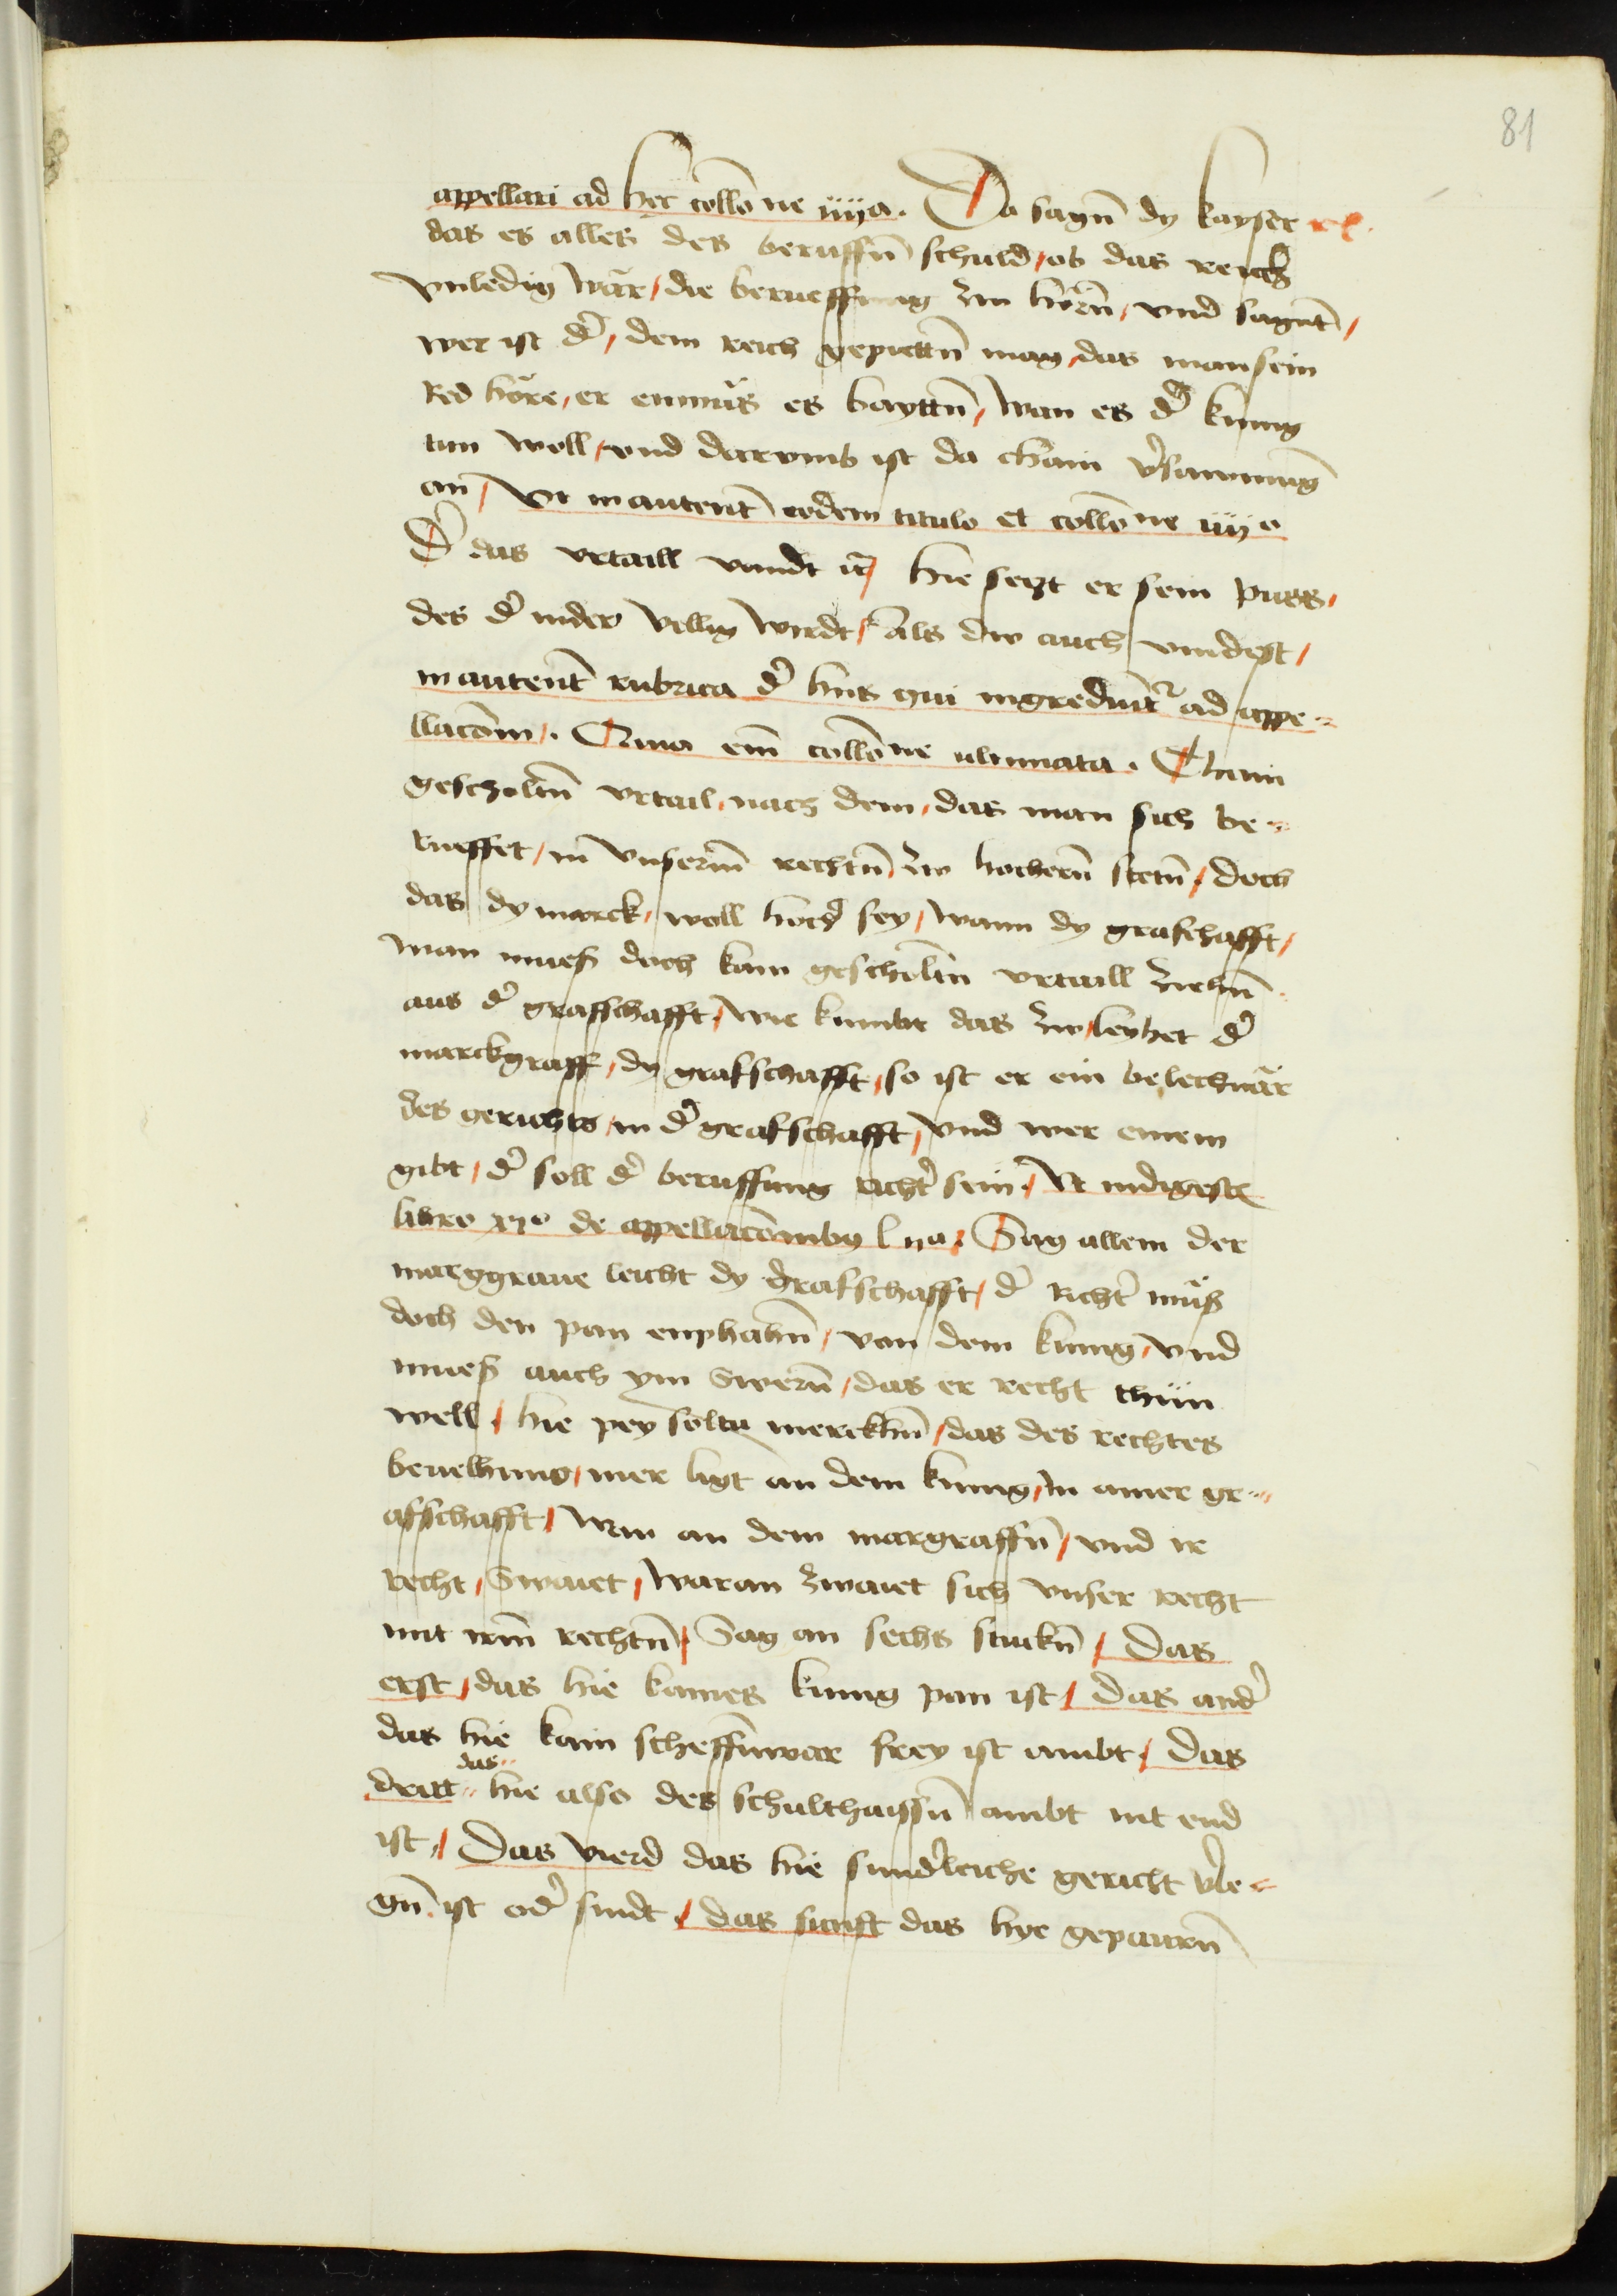 81
appellari ad hec collōne iiija. Do sagn̄ dy kayser
das es alles des beruffn̄ schuld / ob das reich
vnledig wär / die berueffung zw hörn̄ / vnd sagnt /
wer ist d̄ / dem reich gepiettn̄ mag / das man sein
Red höre / er enmüs es bayttn̄ / wan es d̄ kunig
tun woll / vnd darvmb ist da chain v̄samnung
an / Vt in autent̄ eodem titulo et collōne iiija
D̄ das vrtaill vindt ꝛc̄ hie setzt er sein puess /
des d̄ nider vellig wirdt / als dw auch vindest /
in autent̄ rubrica d̄ hiis qui ingrediunt̄ ad appe=
llacōm / . Quia em̄ collōne ultimata . Chain
gescholtn̄ vrtail / nach dem / das man sich be=
rueffet / in vnserm̄ rechtn̄ zw hochern̄ stetn̄ / doch
das dy marck / woll hoch̄ sey / wann dy grafschafft /
man mueß doch kain gescholtn̄ vrtaill ziehn̄
aus d̄ graffschafft / wie kumbt das zw / leyhet d̄
marckgraff / dy grafschafft / so ist er ein belechnär
des gerichts / in d̄ grafschafft / vnd wer einem
gibt / d̄ soll d̄ beruffung richt̄ sein / Vt in digestꝭ
libro de appellacōnibꝰ l ija / Sag allein der
marggraue leicht dy Grafschafft / d̄ richt̄ müß
doch den pan enphahn̄ / von dem kunig / vnd
mueß auch ym Swern̄ / das er recht thün
well / hie pey soltu merckhn̄ / das des rechtes
beuelhung / mer ligt an dem kunig / in ainer gr=
afschafft / wan an dem margraffn̄ / vnd ir
recht / Swaiet / waran zwaiet sich vnser recht
mit irm̄ rechtn̄ / Sag an sechs stuckn̄ / Das
erst / das hie kaines kunig pan ist / Das and̄
das hie kain scheffnwar frey ist ambt / Das
dritt das hie also des schulthaissn̄ ambt nit end
ist / Das vierd das hie sund̄leiche gericht v̄le=
gn̄ ist od̄ sindt / das funft das hye gepaurn̄